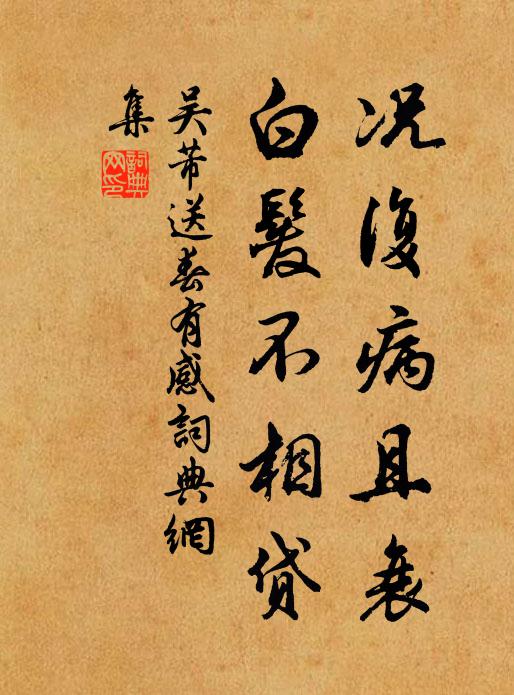 况復病且衰
白髮不相貸
吴芾送春有感詞典網
集
詞典
网印